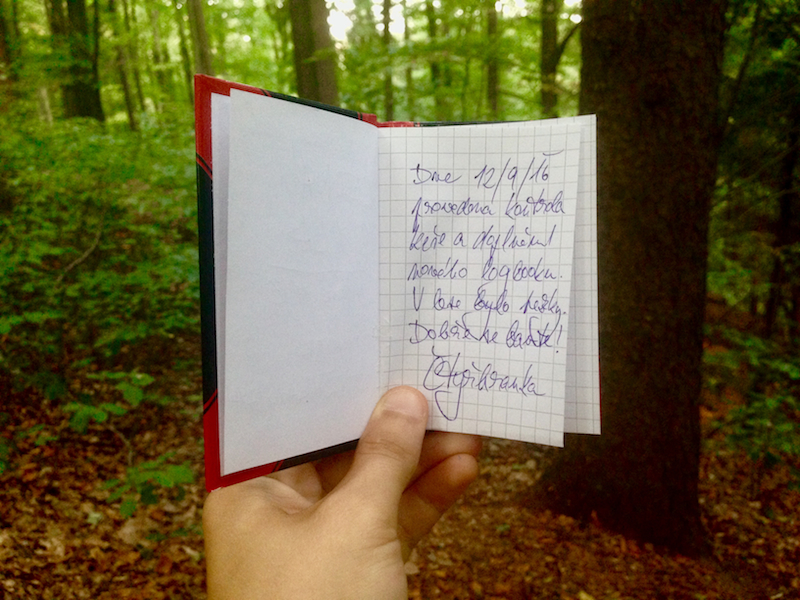 Dne 12/9/16
provedena kontrola
keše a doplnění
nového logbooku.
V lese bylo hezky.
Dobře se bavte!